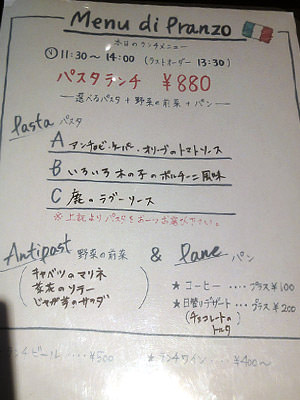 Menu di Pranzo
本日のランチメニュー
11:30〜14:00 (ラストオーダー 13:30)
パスタランチ ¥880
選べるパスタ + 野菜の前菜 + パン
Pasta パスタ
A アンチョビ・ケーパー・オリーブのトマトソース
B いろいろ木の子のポルチーニ風味
C 鹿のラグーソース
※上記よりパスタをお一つお選び下さい。
Antipast 野菜の前菜 & Pane パン
キャベツのマリネ
じゃが芋のサラダ
★ コーヒー ‥‥ プラス ¥100
★ 日替りデザート ‥‥ プラス ¥200
(チョコレートのトルタ)
ランチビール ‥‥ ¥500 ★ ランチワイン ‥‥ ¥400〜